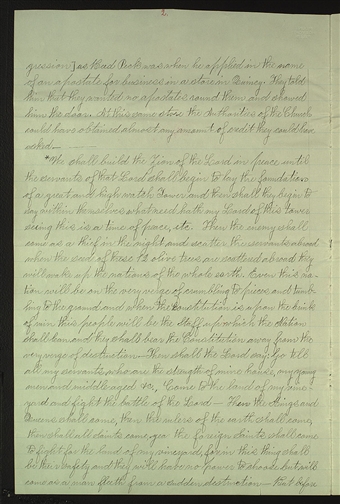 2
gression] as Bad Pook was when he applied in the name
of an apostate for business in a store in Quincy. They told
him that they wanted no apostates round them and showed
him the door. At this same store the Authorities of the Church
could have obtained almost any amount of credit they could have
asked.—
"We shall build the Zion of the Lord in peace until
the servants of that Lord shall begin to lay the foundation
of a great and high watch Tower and then shall they begin to
say within themselves what need hath my Lord of this tower
seeing this is a time of peace, etc. Then the enemy shall
come as a thief in the night and scatter the servants abroad
when the seed of these 12 olive trees are scattered abroad they
will wake up the nations of the whole earth. Even this na-
tion will be on the very verge of crumbling to pieces and tumb-
ling to the ground and when the Constitution is upon the brink
of ruin this people will be the staff upon which the Nation
shall lean and they shall bear the Constitution away from the
very verge of destruction—Then shall the Lord say: Go tell
all my servants who are the strength of mine house, my young
men and middle aged &c., Come to the land of my vine-
yard and fight the battle of the Lord—Then the Kings and
Queens shall come, then the rulers of the earth shall come,
then shall all saints come, yea the foreign saints shall come
to fight for the land of my vineyard, for in this thing shall
be their safety and they will have no power to choose but will
come as a man fleeth from a sudden destruction—But before